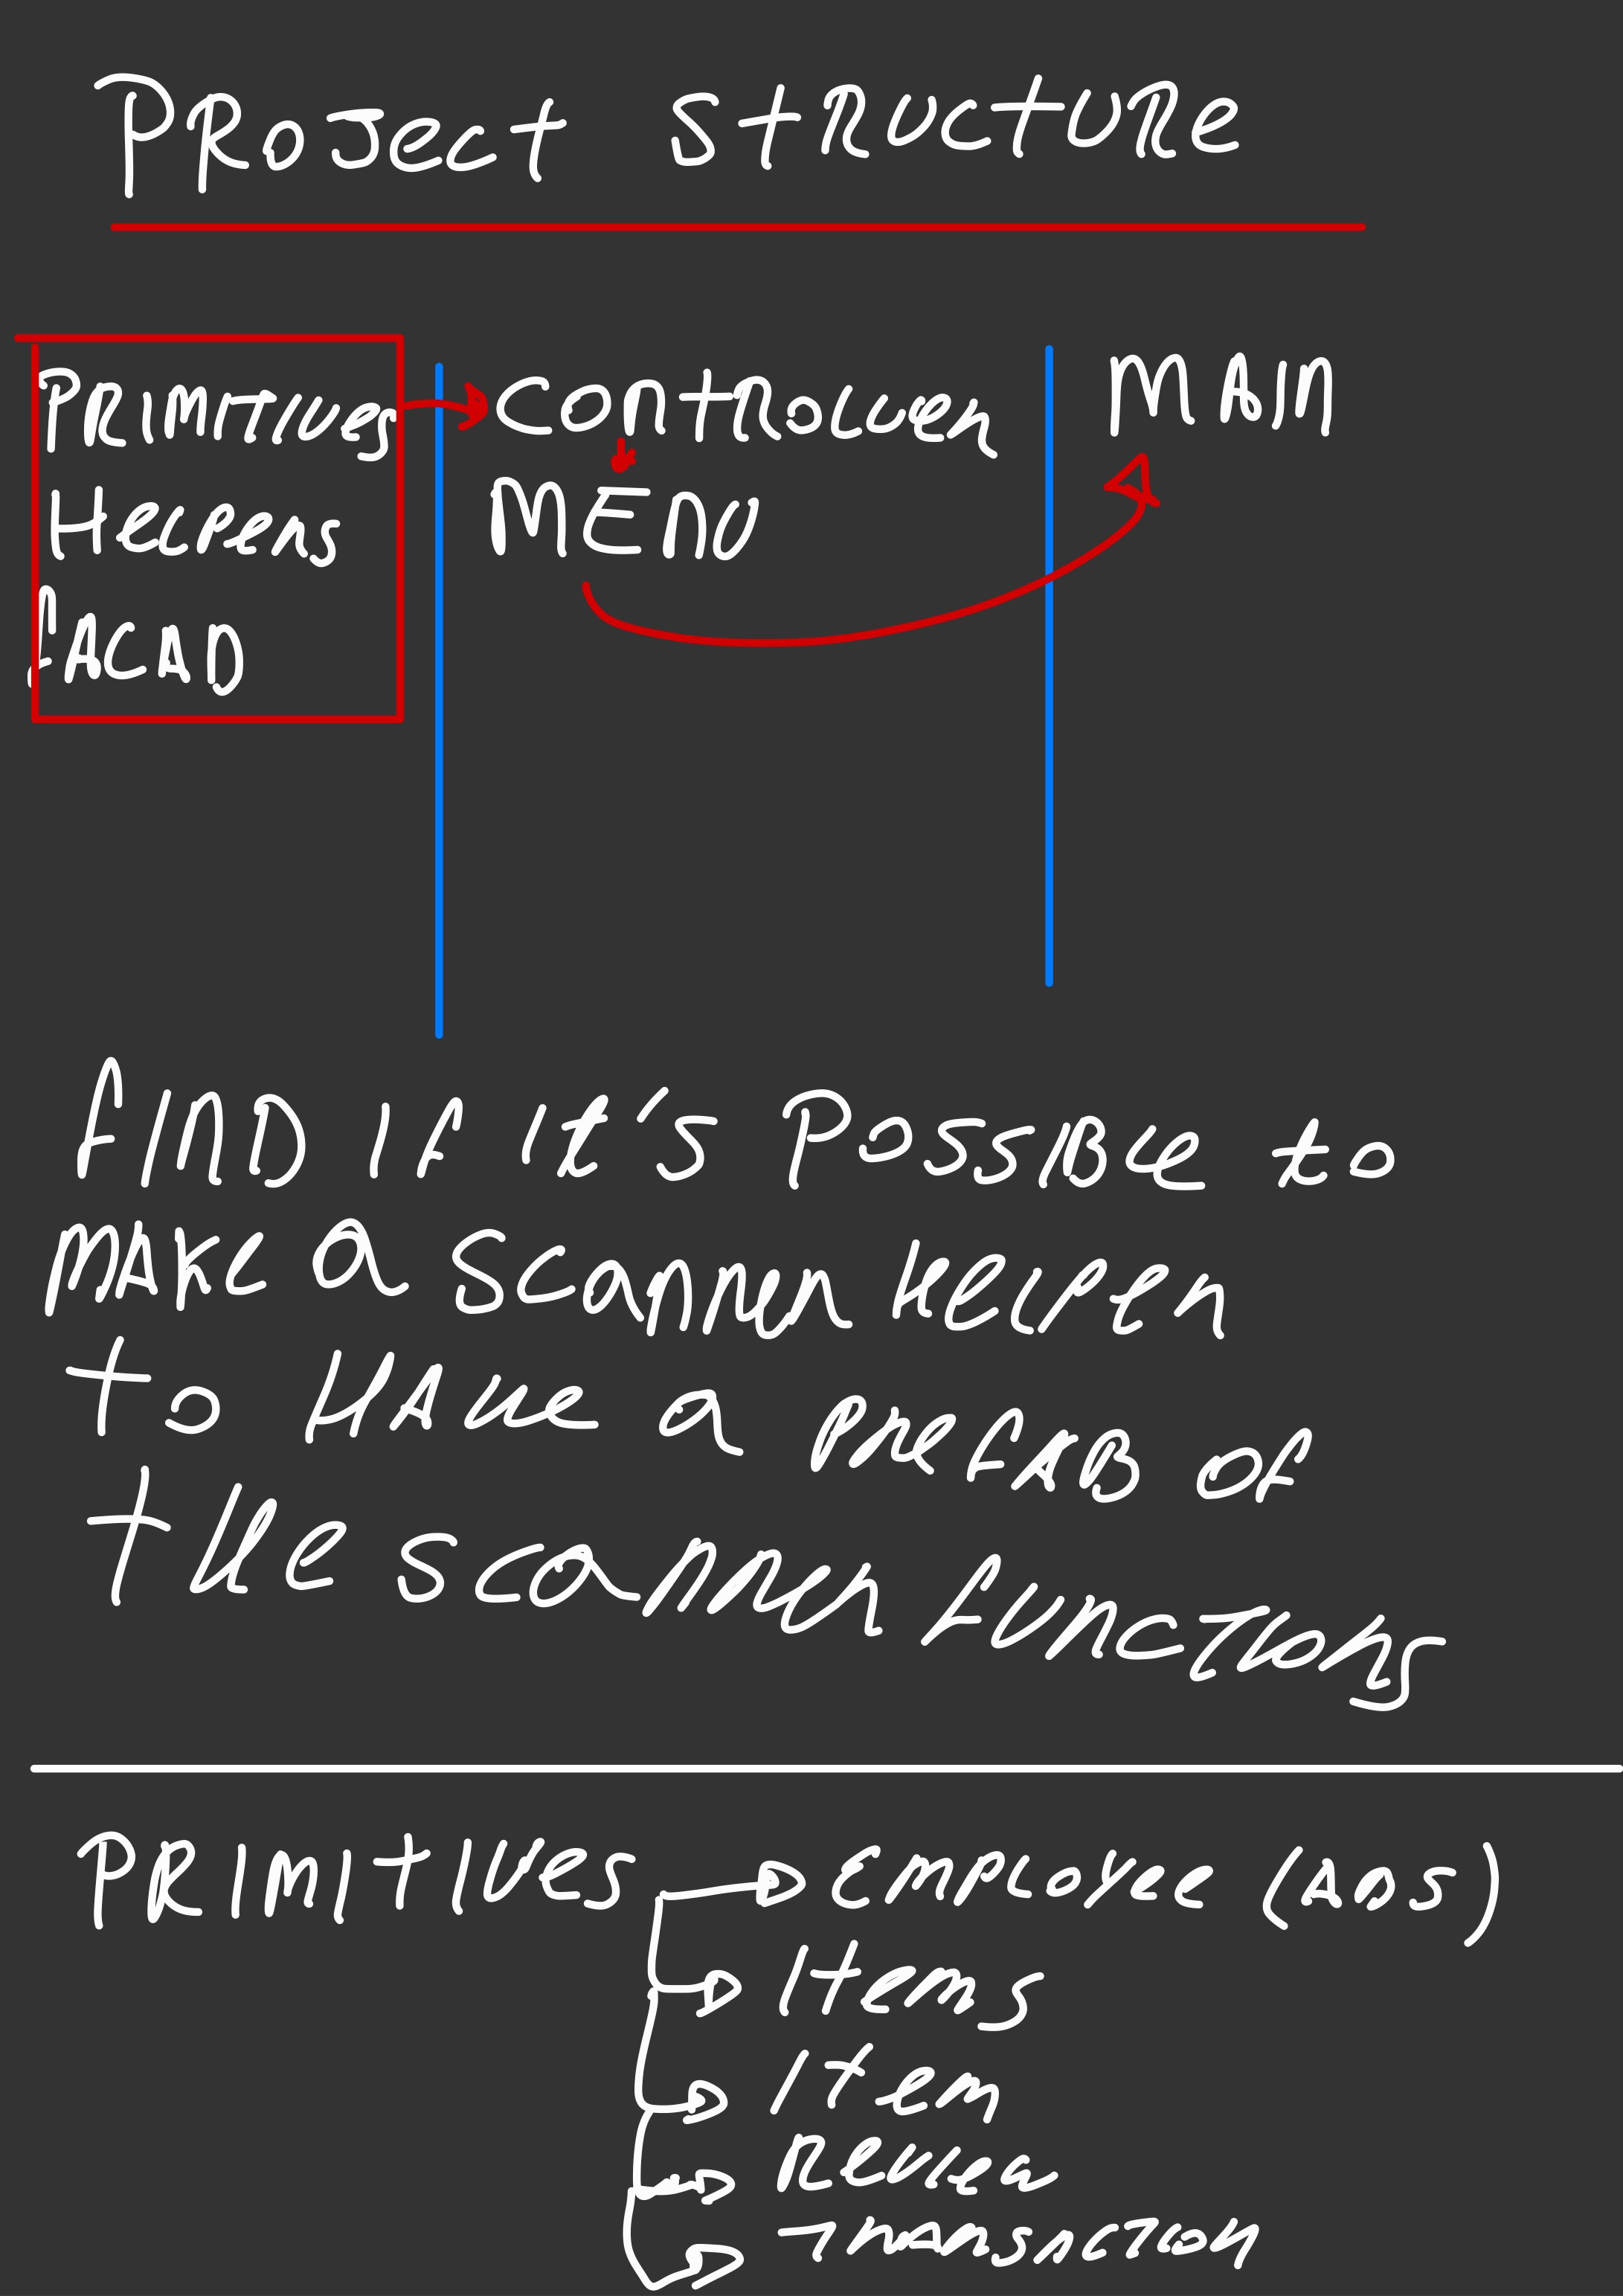 Project structure
Primitives
Helpers
FACAD
controller
MENU
MAIN
FIND if it's Possible to
MAKE a scanner helper
to HAVE a prefab of
the scanner functions
PRIMITIVES
Items
Item
Review
Transaction